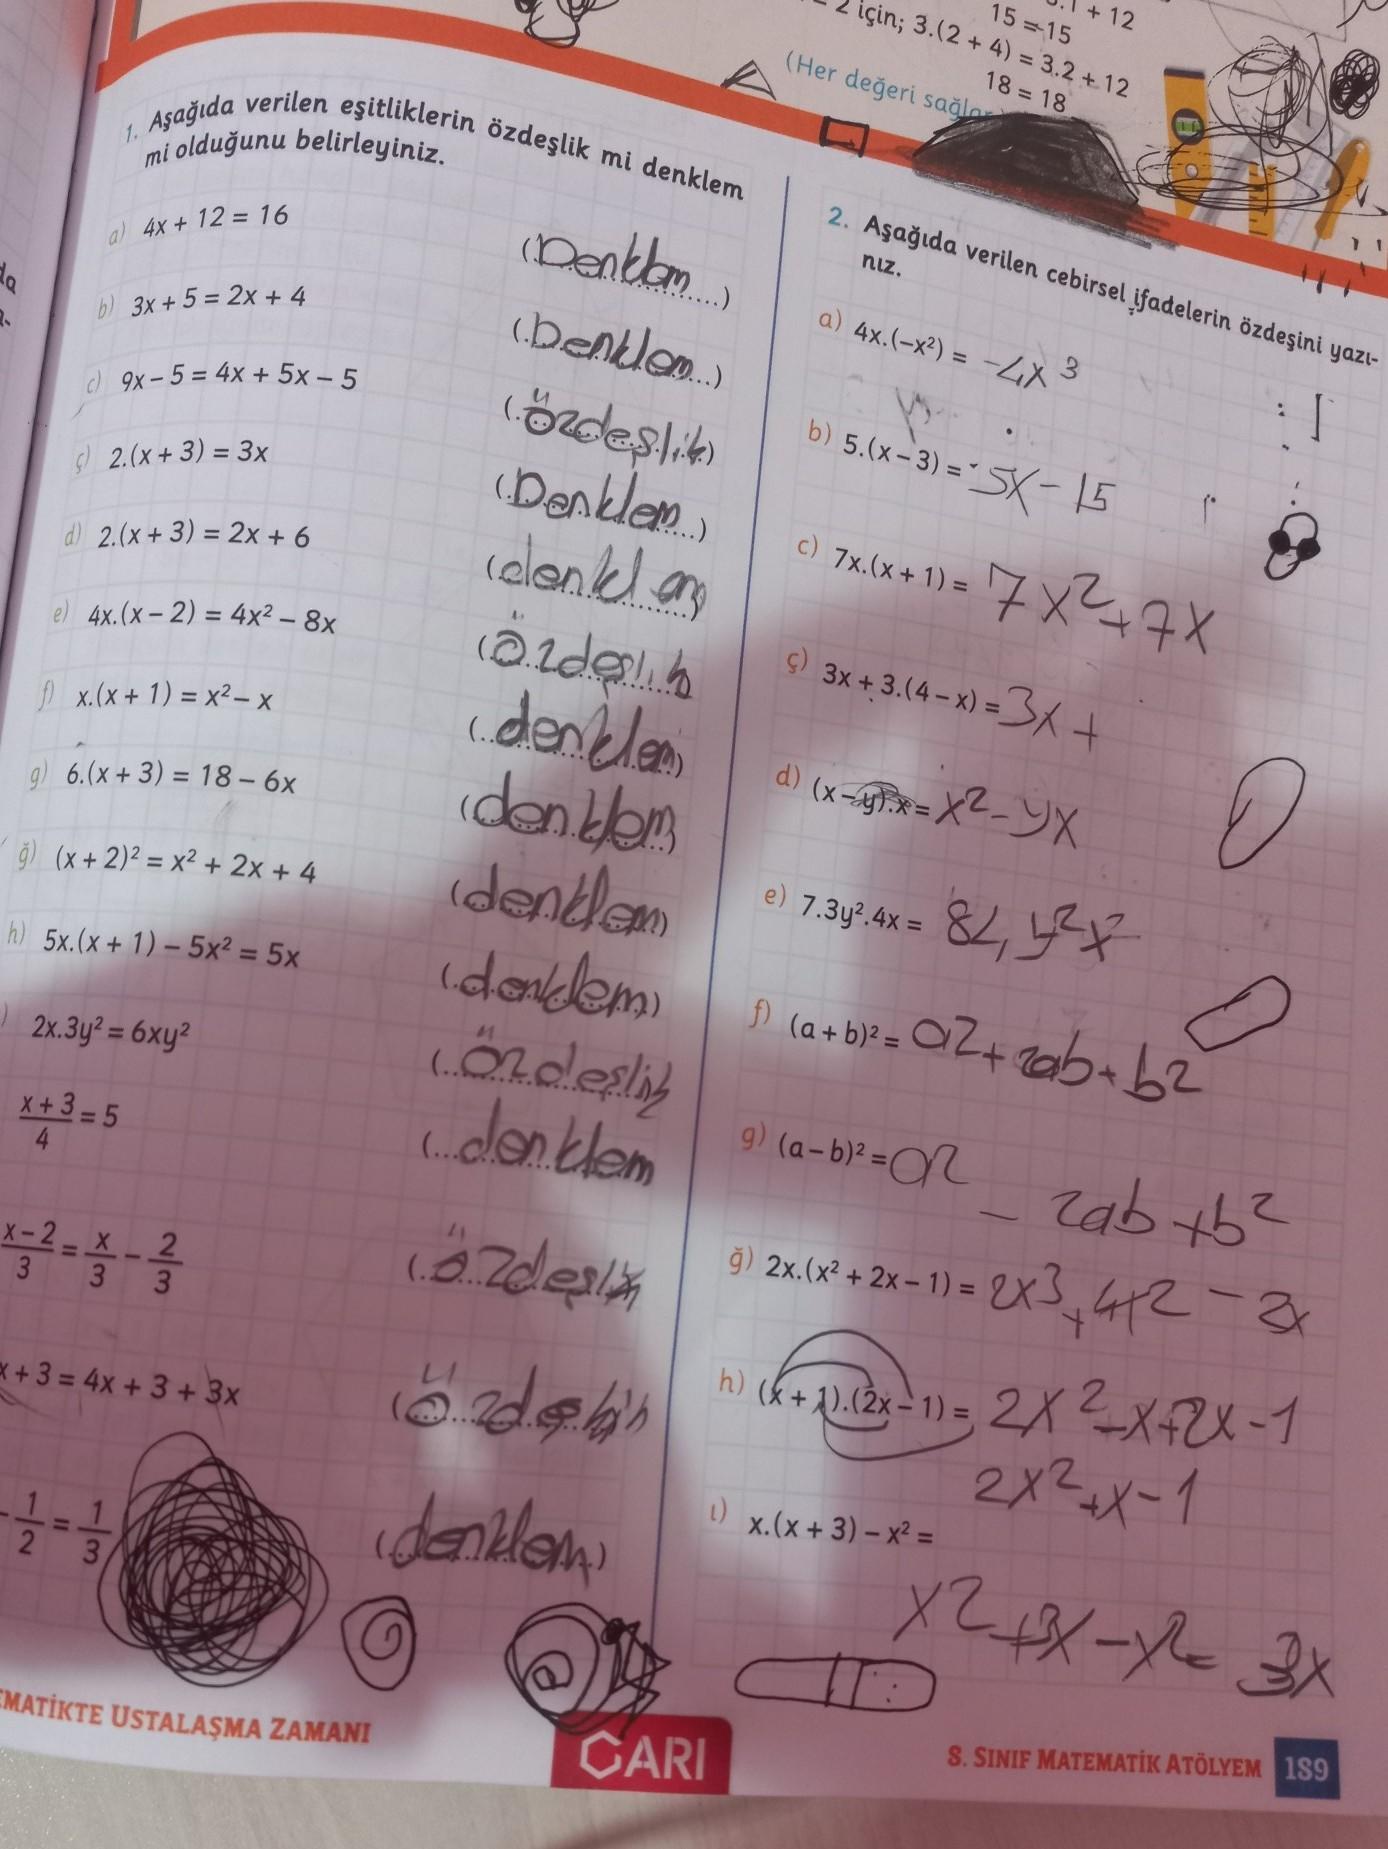 15 = 15
2 için; 3.(2 + 4) = 3.2 + 12
18 = 18
(Her değeri sağlar
1. Aşağıda verilen eşitliklerin özdeşlik mi denklem
mi olduğunu belirleyiniz.
a) 4x + 12 = 16 (Denklem)
b) 3x + 5 = 2x + 4 (Denklem)
c) 9x – 5 = 4x + 5x – 5 (özdeşlik)
ç) 2.(x + 3) = 3x (Denklem)
d) 2.(x + 3) = 2x + 6 (denklem
e) 4x.(x – 2) = 4x² – 8x (Özdeşlik
f) x.(x + 1) = x² – x (denklem)
g) 6.(x + 3) = 18 – 6x (denklem
ğ) (x + 2)² = x² + 2x + 4 (denklem)
h) 5x.(x + 1) – 5x² = 5x (denklem)
) 2x.3y² = 6xy² (özdeşlik
x + 3 / 4 = 5 (denklem
x – 2 / 3 = x / 3 – 2 / 3 (özdeşlik
x + 3 = 4x + 3 + 3x (özdeşlik
– 1 / 2 = 1 / 3 (denklem)
2. Aşağıda verilen cebirsel ifadelerin özdeşini yazı-
nız.
a) 4x.(–x²) = -4x³
b) 5.(x – 3) = 5x - 15
c) 7x.(x + 1) = 7x² + 7x
ç) 3x + 3.(4 – x) = 3x +
d) (x – y).x = x² - yx
e) 7.3y².4x = 84 y²x
f) (a + b)² = a2 + 2ab + b2
g) (a – b)² = a2
- 2ab + b²
ğ) 2x.(x² + 2x – 1) = 2x3 + 4x2 - 2x
h) (x + 1).(2x – 1) = 2x² - x + 2x - 1
2x² + x - 1
ı) x.(x + 3) – x² =
x2 + 3x - x² = 3x
EMATİKTE USTALAŞMA ZAMANI
ARI
8. SINIF MATEMATİK ATÖLYEM 189